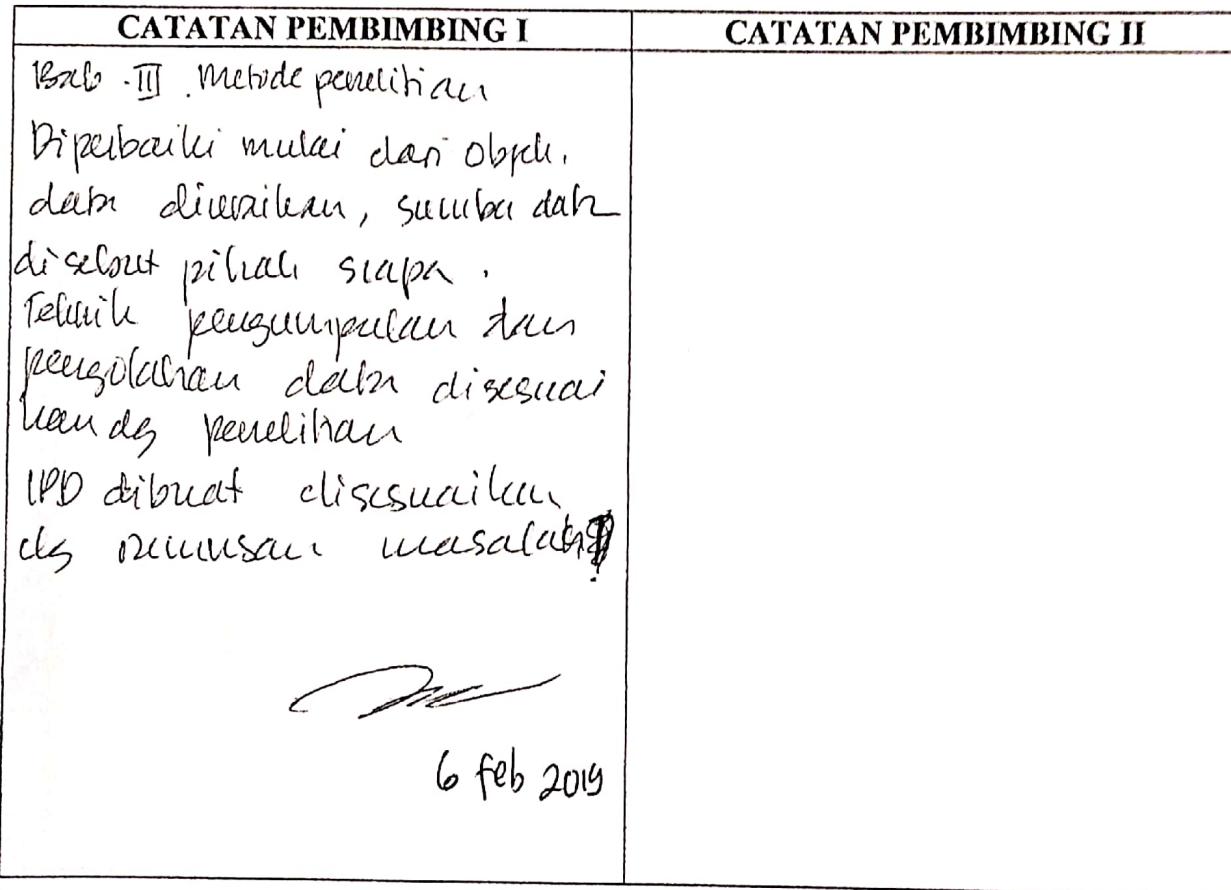 CATATAN PEMBIMBING I
CATATAN PEMBIMBING II
Bab. III. Metode penelitian
Diperbaiki mulai dari objek,
data diuraikan, sumber data
disebut pihak siapa.
Teknik pengumpulan dan
pengolahan data disesuai
kan dg penelitian
IPD dibuat disesuaikan
dg rumusan masalah
6 feb 2019